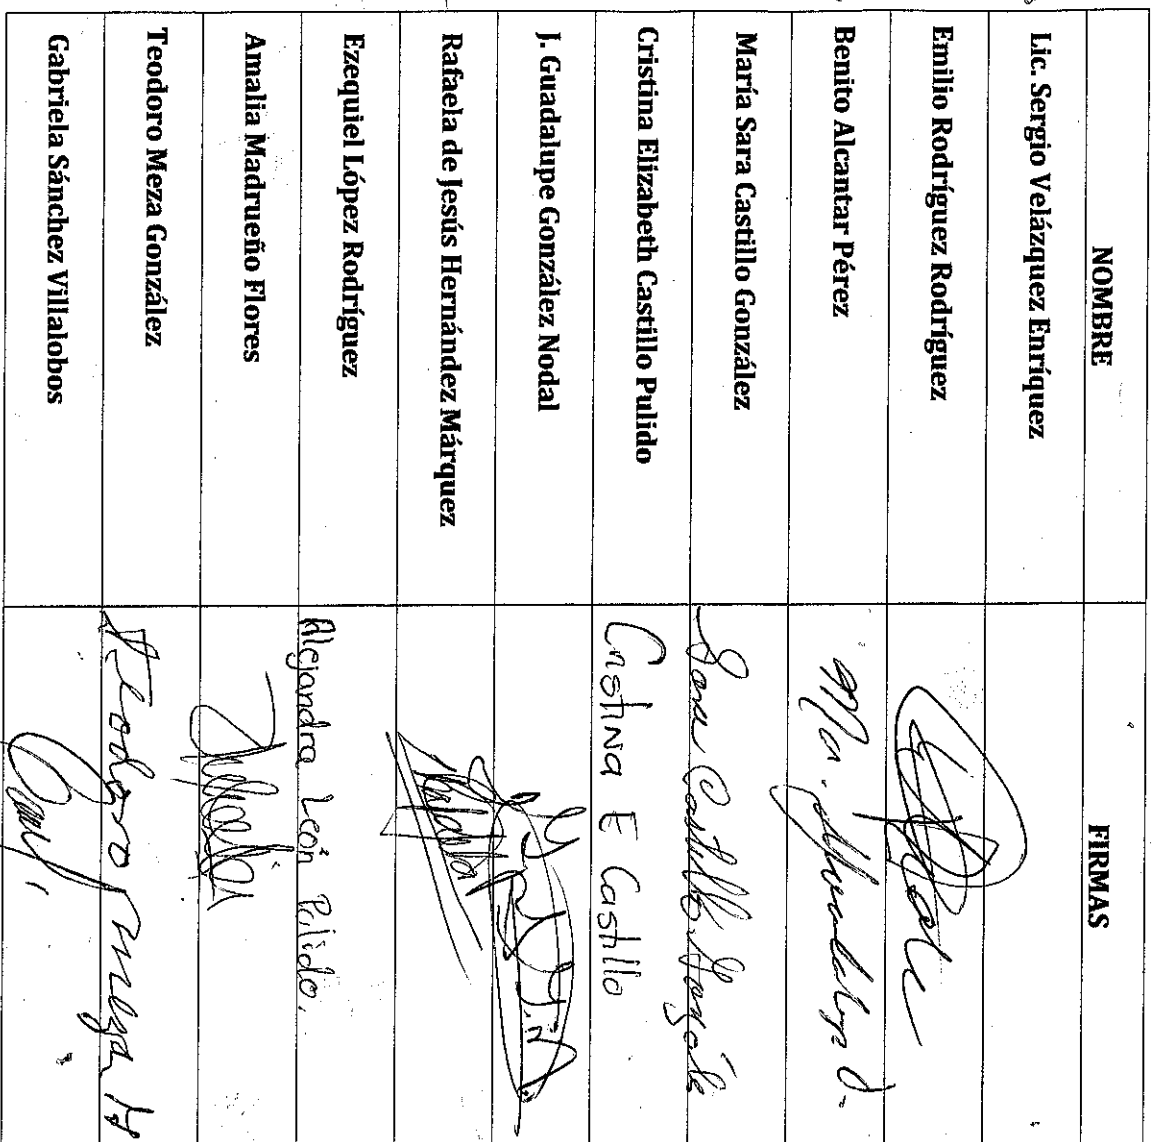 NOMBRE FIRMAS
Lic. Sergio Velázquez Enríquez
Emilio Rodríguez Rodríguez
Benito Alcantar Pérez Ma.
María Sara Castillo González Sara Castillo Gonzále
Cristina Elizabeth Castillo Pulido Cristina E Castillo
J. Guadalupe González Nodal
Rafaela de Jesús Hernández Márquez
Ezequiel López Rodríguez Alejandra León Pulido.
Amalia Madrueño Flores
Teodoro Meza González Teodoro meza
Gabriela Sánchez Villalobos